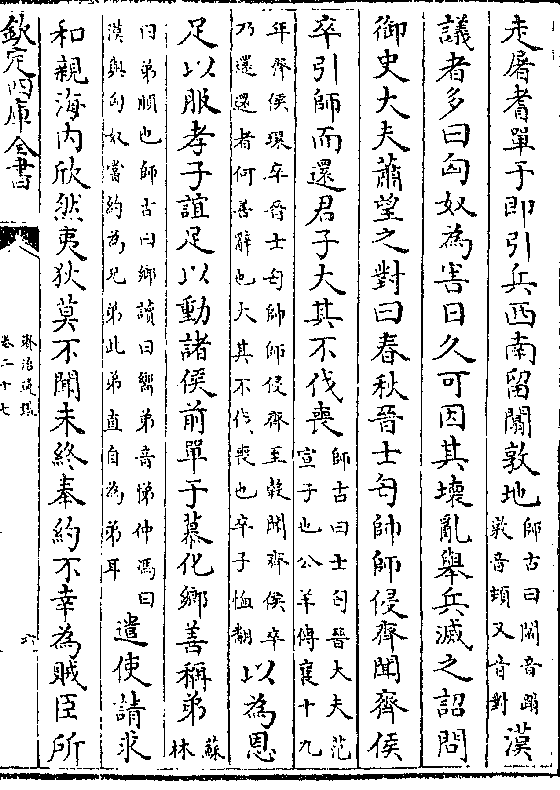 走屠耆單于即引兵西南留闟敦地師古曰闟音蹋敦音頓又音對漢
議者多曰匈奴為害日久可因其壞亂舉兵滅之詔問
御史大夫蕭望之對曰春秋晉士匄帥師侵齊聞齊侯
卒引師而還君子大其不伐喪師古曰士匄晉大夫范宣子也公羊傳襄十九
年齊侯環卒晉士匄帥師侵齊至穀聞齊侯卒乃還還者何善辭也大其不伐喪也卒子恤翻以為恩
足以服孝子誼足以動諸侯前單于慕化鄉善稱弟蘇林
曰弟順也師古曰鄉讀曰嚮弟音悌仲馮曰漢與匈奴嘗約為兄弟此弟直自為弟耳遣使請求
和親海内欣然夷狄莫不聞未終奉約不幸為賊臣所
欽定四庫全書
資治通鑑
卷二十七